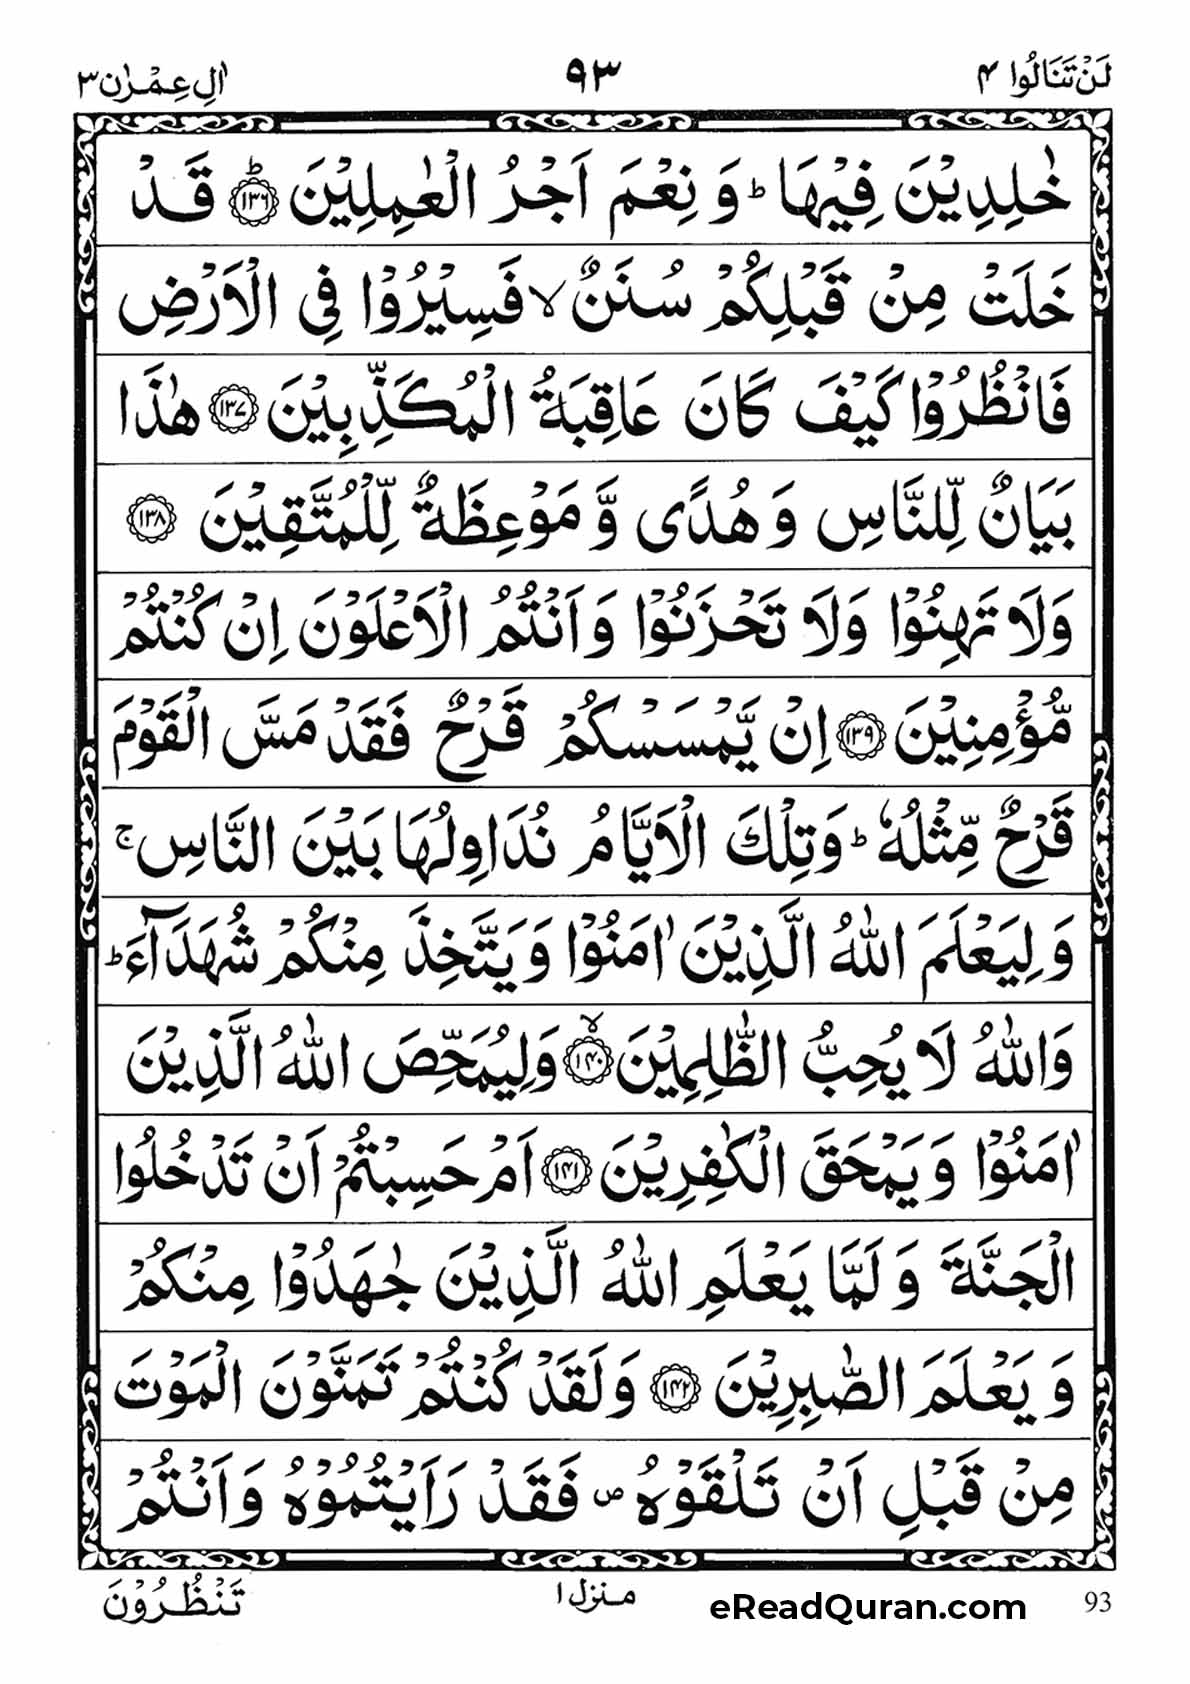 لَنْ تَنَالُوا ۴ ۹۳ اٰلِ عِمْرٰن ۳
خٰلِدِيْنَ فِيْهَا ؕ وَ نِعْمَ اَجْرُ الْعٰمِلِيْنَ ؕ‏﴿۱۳۶﴾ قَدْ
خَلَتْ مِنْ قَبْلِكُمْ سُنَنٌ ۙ فَسِيْرُوْا فِي الْاَرْضِ
فَانْظُرُوْا كَيْفَ كَانَ عَاقِبَةُ الْمُكَذِّبِيْنَ ﴿۱۳۷﴾ هٰذَا
بَيَانٌ لِّلنَّاسِ وَ هُدًى وَّ مَوْعِظَةٌ لِّلْمُتَّقِيْنَ ﴿۱۳۸﴾
وَلَا تَهِنُوْا وَلَا تَحْزَنُوْا وَ اَنْتُمُ الْاَعْلَوْنَ اِنْ كُنْتُمْ
مُّؤْمِنِيْنَ ﴿۱۳۹﴾ اِنْ يَّمْسَسْكُمْ قَرْحٌ فَقَدْ مَسَّ الْقَوْمَ
قَرْحٌ مِّثْلُهٗ ؕ وَتِلْكَ الْاَيَّامُ نُدَاوِلُهَا بَيْنَ النَّاسِ ۚ
وَ لِيَعْلَمَ اللّٰهُ الَّذِيْنَ اٰمَنُوْا وَ يَتَّخِذَ مِنْكُمْ شُهَدَآءَ ؕ
وَاللّٰهُ لَا يُحِبُّ الظّٰلِمِيْنَ ۙ﴿۱۴۰﴾ وَلِيُمَحِّصَ اللّٰهُ الَّذِيْنَ
اٰمَنُوْا وَ يَمْحَقَ الْكٰفِرِيْنَ ﴿۱۴۱﴾ اَمْ حَسِبْتُمْ اَنْ تَدْخُلُوا
الْجَنَّةَ وَ لَمَّا يَعْلَمِ اللّٰهُ الَّذِيْنَ جٰهَدُوْا مِنْكُمْ
وَ يَعْلَمَ الصّٰبِرِيْنَ ﴿۱۴۲﴾ وَلَقَدْ كُنْتُمْ تَمَنَّوْنَ الْمَوْتَ
مِنْ قَبْلِ اَنْ تَلْقَوْهُ ۪ فَقَدْ رَاَيْتُمُوْهُ وَ اَنْتُمْ
تَنْظُرُوْنَ منزل ۱ eReadQuran.com 93